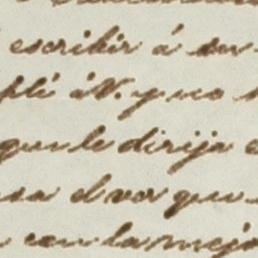 escribir á su
plé á V. y no
que le dirija
sa el ver que
con la mejo